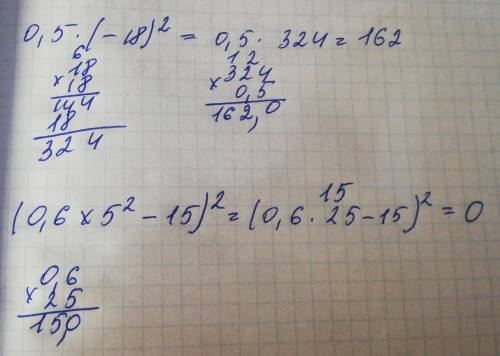 0,5 · (-18)² = 0,5 · 324 = 162
6
18
× 18
144
18
324
12
324
× 0,5
162,0
15
(0,6 × 5² - 15)² = (0,6 · 25 - 15)² = 0
0,6
× 25
15,0